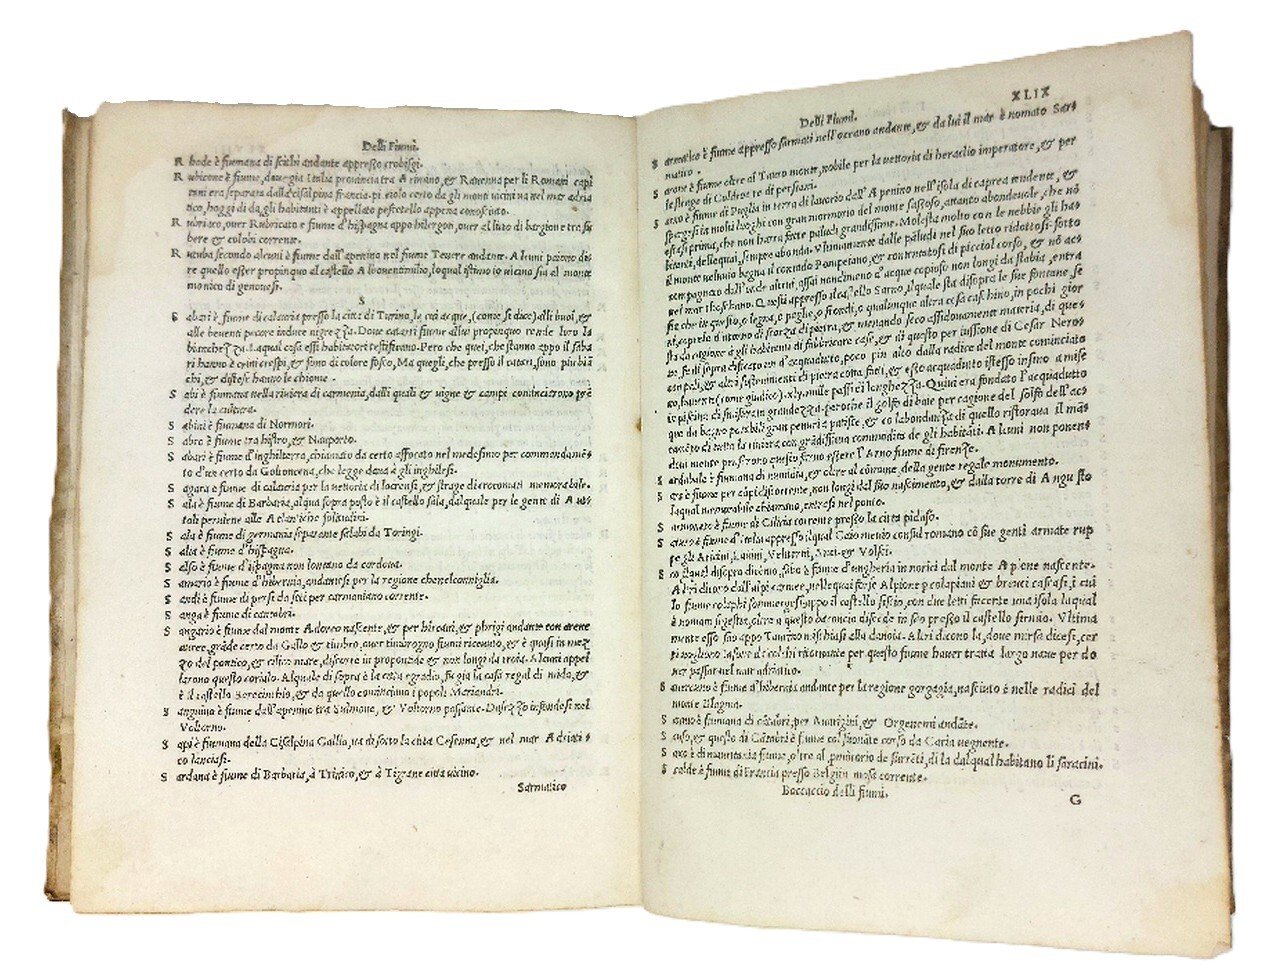 Delli Fiumi.
R hode è fiumana di scithi andante appresso crobisgi.
R ubicone è fiume, doue gia Italia prouincia tra Arimino, & Rauenna per li Romani capi
tani era separata dalla cisalpina francia. picciolo certo da gli monti uicini ua nel mar adria
tico, hoggi di da gli habitanti è appellato pescetello appena conosciuto.
R ubrico, ouer Rubricato è fiume d'hispagna appo hilergon, ouer al lito di bargione tra su
bere & colobi corrente.
R utuba secondo alcuni è fiume dall'apenino nel fiume Teuere andante. Alcuni paiono di
re quello esser propinquo al castello Albouentimilio, loqual istimo io uicano sia al monte
monico di genouesi.
S
S abari è fiume di calauria presso la citta di Turino, le cui acque, (come si dice) alli buoi, &
alle beuenti pecore induce nigrezza. Doue catari fiume allui propinquo rende loro la
bianchezza. Laqual cosa essi habitatori testificano. Pero che quei, che stanno appo il saba
ri hanno è crini crespi, & sono di colore fosco, Ma quegli, che presso il catari, sono piu biā
chi, & distese hanno le chiome.
S abi è fiumana nella riuiera di carmenia, dalli quali & uigne & campi cominciarono prē
dere la cultura.
S abini è fiumana di Normori.
S abro è fiume tra histro, & Nauporto.
S abari è fiume d'inghilterra, chiamato da certo affocato nel medesimo per commandamē
to d'un certo da Golioncena, che legge daua à gli inghilesi.
S agara è fiume di calauria per la uettoria di locrensi, & strage di crotonati memorabile.
S ala è fiume di Barbaria, alqua sopra posto è il castello sala, dalquale per le gente di Aut
toli peruiene alle Atlantiche solitudini.
S ala è fiume di germania separante salabi da Toringi.
S alia è fiume d'hispagna.
S also è fiume d'ispagna non lontano da cordoua.
S amario è fiume d'hibernia, andantesi per la regione chenelconniglia.
S andi è fiume di persi da sciti per carmaniano corrente.
S anga è fiume di cantabri.
S angario è fiume dal monte Adoreo nascente, & per hircani, & phrigi andante con arene
auree, grāde certo da Gallo & timbro, ouer timbrogno fiumi riceuuto, & è quasi in mez
zo del pontico, & cilico mare, discorre in proponide & non longi da troia. Alcuni appel
larono questo corialo. Alquale di sopra è la citta rgradio, fu gia la casa regal di mida, &
è il castello Sarecimblo, & da quello comincimo i popoli Mariandri.
S anguino è fiume dall'apenino tra Sulmone, & Voltorno passante. Dasezzo infondesi nel
Voltorno.
S api è fiumana della Cisalpina Gallia, ua di sotto la citta Cesenna, & nel mar Adriati
co lanciasi.
S ardana è fiume di Barbaria, à Trisaco, & à Tigzane citta uicino.
Sarmatico
XLIX
Delli Fiumi.
S armatico è fiume appresso sarmati nell'oceano andante, & da lui il mar è nomato Sar
matico.
S arone è fiume oltre al Tauro monte, nobile per la uettoria di heraclio imperatore, & per
le strage di Coldroe re di persiani.
S arno è fiume di Puglia in terra di lauoro dall'Apenino nell'isola di caprea rendente, &
spargesi in molti luoghi con gran mormorio del monte sassoso, antanto abondeuole, che nō
essasi prima, che non harra fatte paludi grandissime. Molesta molto con le nebbie gli ha
bitanti, dellequai, sempre abonda. Vltimamente dalle paludi nel suo letto ridottosi sotto
il monte ueseuio bagna il contado Pompeiano, & contentatosi di picciol corso, & nō ac
compagnato dall'onde altrui, assai nondimeno d'acque copioso non longi da stabia, entra
nel mar thoschano. Questi appresso il castello Sarno, ilquale sta disopra le sue fontane, se
fia che in questo, o legna, o paglie, o frondi, o qualunque altra cosa caschino, in pochi gior
ni, coprelo d'intorno di scorza di pietra, & menando seco assiduamente materia, di que
sta da cagione à gli habitanti di fabbricare case, & di questo per iussione di Cesar Nero
ne, fu di sopra edificato un'acquaduto, poco piu alto dalla radice del monte cominciato
con pali, & altri sustrumenti di pietra cotta fatti, & esto acquaduto istesso insino a mise
no, fauente (come giudico). xlv. mille passi di longhezza. Quiui era fondato l'acquadutto
in piscina di smisurata grandezza. peroche il golfo di baie per cagione del solfo dell'ac
que da bagno potabili gran penuria patisce, & co labondanza di quello ristoraua il man
camēto di tutta la riuiera con grādissima commodita de gli habitāti. Alcuni non ponen
doui mente profirono questo sarno essere l'Arno fiume di firenze.
S ardabale è fiumana di numidia, & oltre al cōmune della gente regale monumento.
S ars è fiume per cāpi discorrente, non longi dal suo nascimento, & dalla torre di Augusto
laqual memorabile chiamano, entrasi nel ponto.
S armoneo è fiume di Cilicia corrente presso la citta pidaso.
S atreo è fiume d'italia appresso ilqual Gaio menio consul romano cō sue genti armate rup
pe gli Aricini, Lauini, Veliterni, Anti & Volsci.
S co ilqual disopra dicēmo, sabo è fiume d'ungheria in norici dal monte Apione nascente.
Altri dicono dall'alpi carnee, nellequai forse Alpione p colapiani & breuci cascasi, i cui
lo fiume colaphi sommergesi appo il castello siscio, con due letti facente una isola la qual
è nomata sigestia, oltre a questo bacontio discede in seo presso il castello sirmio. Vltima
mente esso sao appo Taurino mischiasi alla danoia. Altri dicono la, doue mursa dicesi, cer
ti uogliono Iasone da colchi ritornante per questo fiume hauer tratta largo naue per do
uer passar nel mar adriatico.
S aueriano è fiume d'hibernia andante per la regione gorgagia, nasciuto è nelle radici del
monte Blogma.
S auno è fiumana di cātabri, per Auarigini, & Orgenemi andāte.
S auso, & questo di Cātabri è fiume cō spōnate corso da Caria uegnente.
S axo è di mauritania fiume, oltre al pmōtorio de surrēti, di la dalqual habitano li saracini.
S calde è fiume di Francia presso Belgiū mosa corrente.
Boccaccio delli fiumi.
G